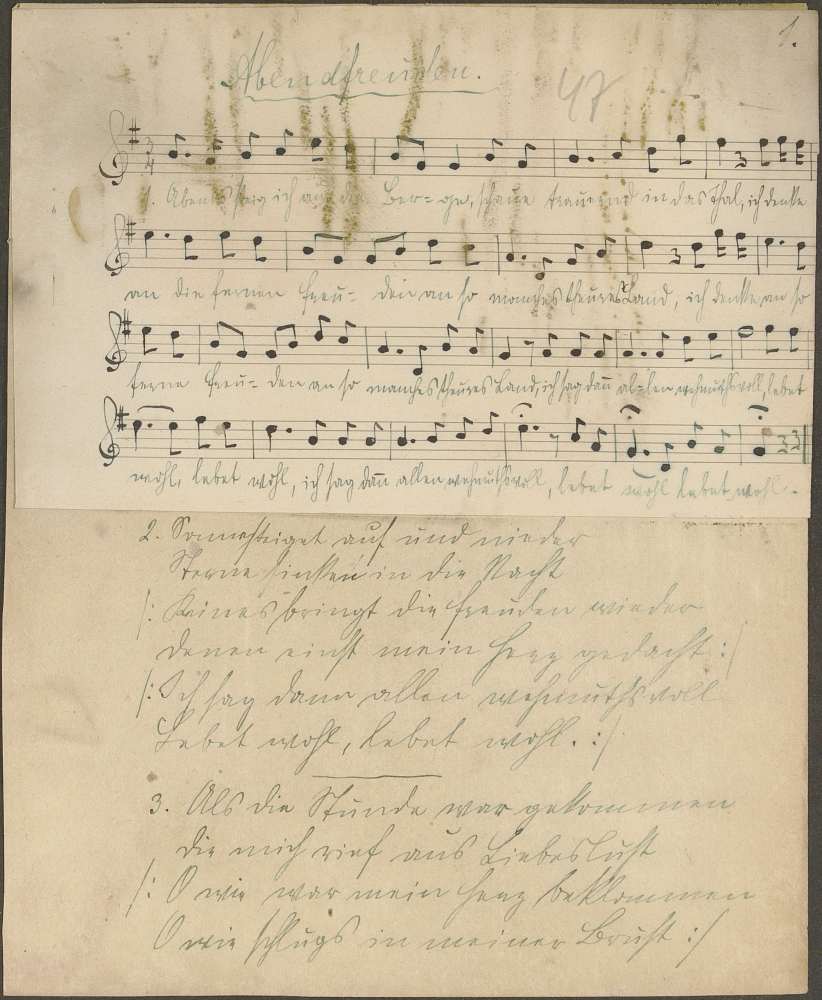 1.
Abendfreuden.
47
1. Abends steig ich auf die Ber= ge, schaue trauernd in das Thal, ich denke
an die fernen Freu= den an so manches theures Land, ich denke an so
ferne Freu= den an so manches theures Land, ich sag dan̄ al=len wehmuthsvoll, lebet
wohl, lebet wohl, ich sag dan̄ allen wehmuthsvoll, lebet wohl lebet wohl.
2. Sonne steiget auf und nieder
Sterne sinken in die Nacht
/: Keines bringt die Freuden wieder
denen einst mein Herz gedacht :/
/: Ich sag dann allen wehmuthsvoll
Lebet wohl, lebet wohl. :/
3. Als die Stunde war gekommen
die mich rief aus Liebeslust
/: O wie war mein Herz beklommen
O wie schlugs in meiner Brust :/